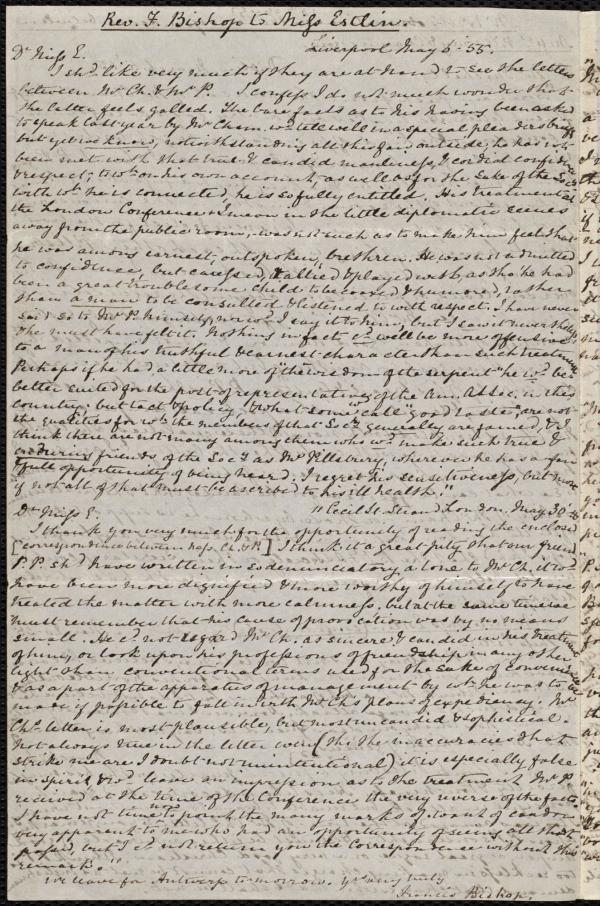 Rev. F. Bishop to Miss Estlin.
Liverpool May 6 - 55.
Dr Miss E.
I shd. like very much if they are at hand to see the letters
between Mr Ch. & Mr P. I confess I do not much wonder that
the latter feels galled. The bare facts as to his having been asked
to speak last year by Mr Cham. wd. tell well in a special pleader's brief
but yet we know, notwithstanding all this fair outside, he has not
been met with that true & candid manliness, & cordial confidence
& respect, to wh. on his own account, as well as for the sake of the Socy.
with wh. he is connected, he is so fully entitled. His treatment at
the London Conference & I mean in the little diplomatic scenes
away from the public room, was not such as to make him feel that
he was among earnest, outspoken, brethren. He was not admitted
to confidence, but caressed, & played with, as tho he had
been a great troublesome child to be coaxed & humored, rather
than a man to be consulted & listened to with respect. I have never
said so to Mr P. himself, nor wd. I say it to him, but I saw it nevertheless
& he must have felt it. Nothing in fact cd. well be more offensive
to a man of his truthful & earnest character than such treatment
Perhaps if he had a little more of the wisdom of the serpent "he wd. be
better suited for the post of representative of the Am. A.S. Soc. in this
country; but tact & policy, & what some wd. call good taste, are not
the qualities for wh. the members of that Socy. generally are famed, & I
think there are not many among them who wd. make such true &
enduring friends of the Socy. as Mr Pillsbury, wherever he has a fair
& full opportunity of being heard. I regret his sensitiveness, but more
if not all of that must be ascribed to his ill health."
"Cecil St. Strand London. May 30 - 55
Dr Miss E.
I thank you very much for the opportunity of reading the enclosed
[correspondence between Messs. Ch. & P.] I think it a great pity that our friend
P.P. shd. have written in so denunciatory a tone to Mr Ch, it wd.
have been more dignified & more worthy of himself to have
treated the matter with more calmness, but at the same time we
must remember that his cause of provocation was by no means
small. He cd. not regard Mr Ch. as sincere & candid in his treatment
of him, or look upon his professions of friendship in any other
light than conventional terms used for the sake of convenience
& as a part of the apparatus of management by wh. he was to be
made if possible to fall in with Mr Ch's plans of expediency. Mr
Ch's letter is most plausible, but most uncandid & sophistical.
Not always true in the letter even (tho. the inaccuracies that
strike me are I doubt not unintentional) it is especially false
in spirit, & wd. leave an impression as to the treatment Mr P.
received at the time of the Conference the very reverse of the facts
I have not time now to point the many marks of want of candor
very apparent to me who had an opportunity of seeing all that
passed, but I cd. not return you the correspondence without this
remark."
We leave for Antwerp to morrow. yrs. very truly
Francis Bishop.